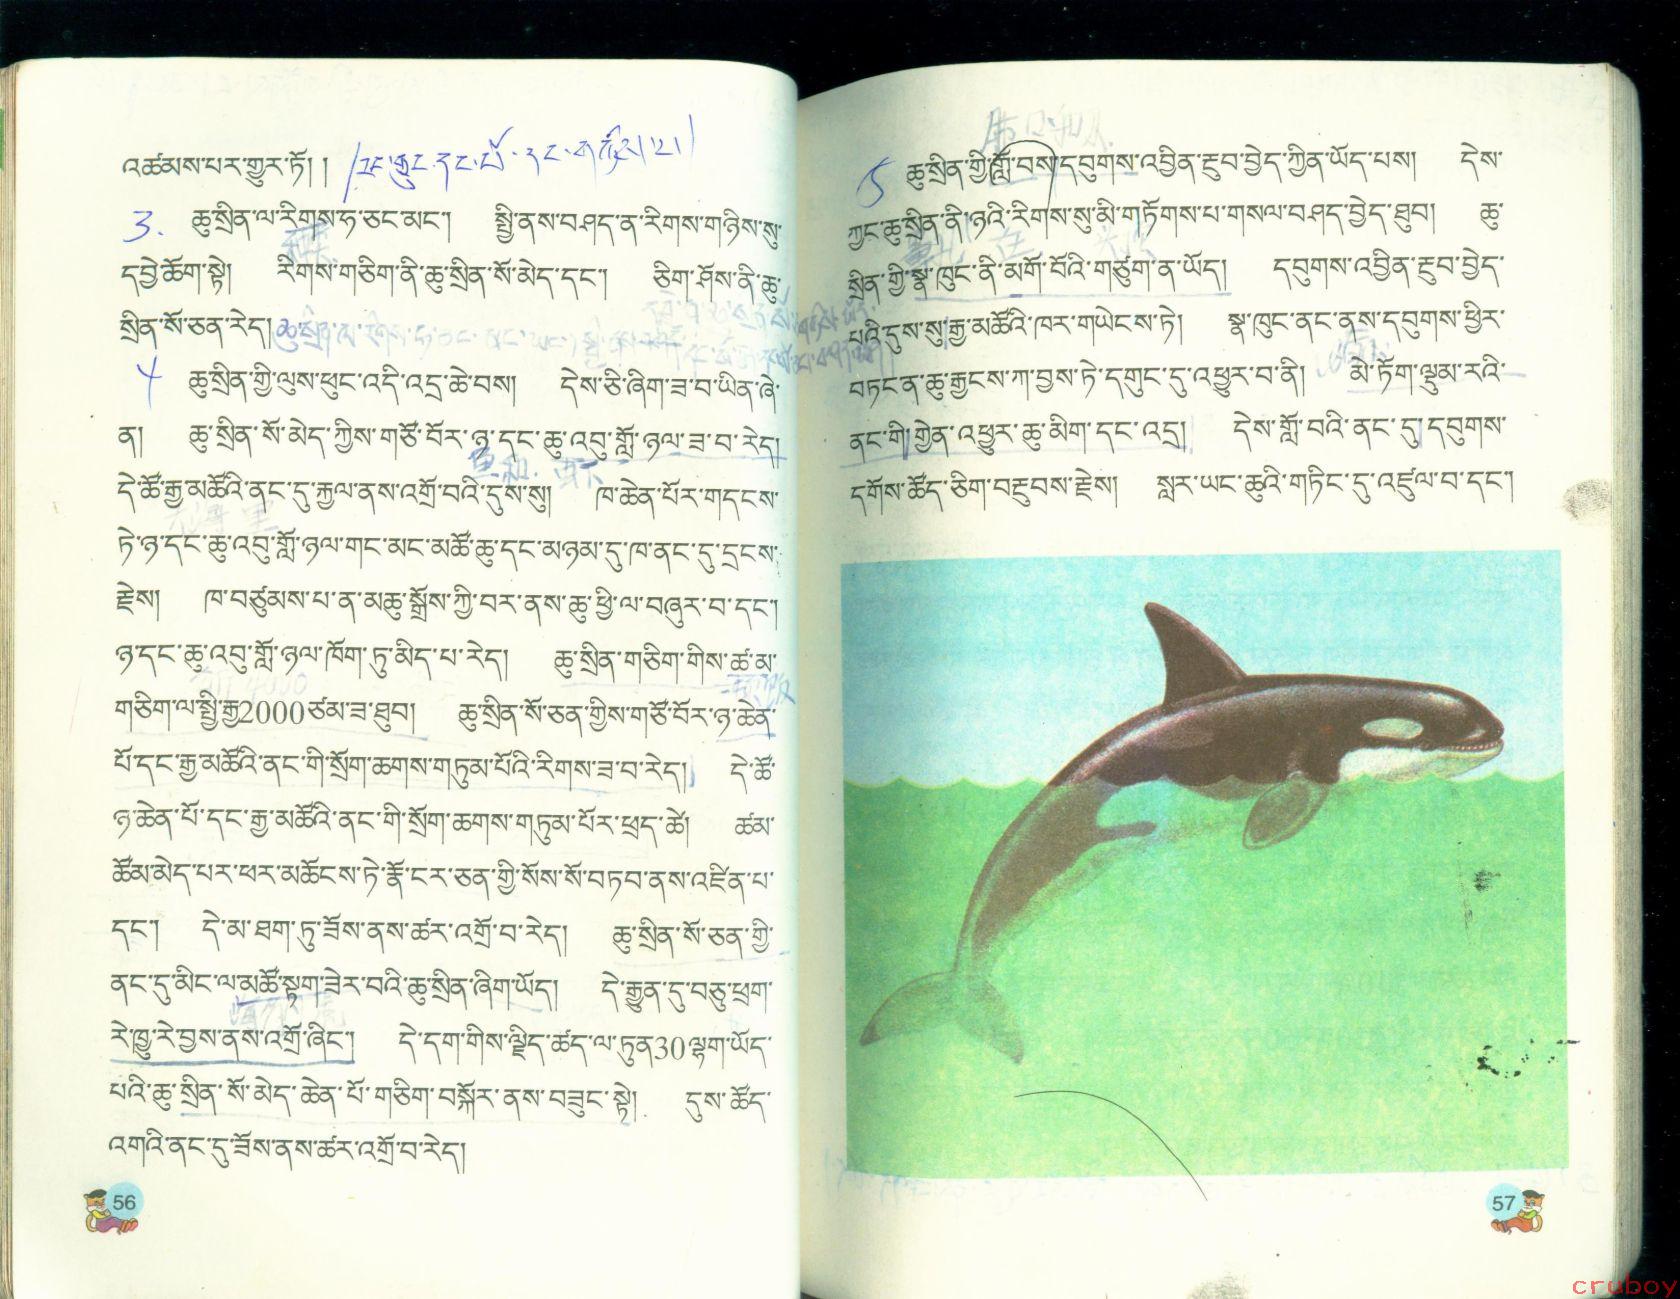 འཚམས་པར་གྱུར་ཏོ། །
3. ཆུ་སྲིན་ལ་རིགས་ཧ་ཅང་མང་། སྤྱི་ནས་བཤད་ན་རིགས་གཉིས་སུ་
དབྱེ་ཆོག་སྟེ། རིགས་གཅིག་ནི་ཆུ་སྲིན་སོ་མེད་དང་། ཅིག་ཤོས་ནི་ཆུ་
སྲིན་སོ་ཅན་རེད།
4 ཆུ་སྲིན་གྱི་ལུས་ཕུང་འདི་འདྲ་ཆེ་བས། དེས་ཅི་ཞིག་ཟ་བ་ཡིན་ཞེ་
ན། ཆུ་སྲིན་སོ་མེད་ཀྱིས་གཙོ་བོར་ཉ་དང་ཆུ་འབུ་གློ་ཉལ་ཟ་བ་རེད།
དེ་ཚོ་རྒྱ་མཚོའི་ནང་དུ་རྐྱལ་ནས་འགྲོ་བའི་དུས་སུ། ཁ་ཆེན་པོར་གདངས་
ཏེ་ཉ་དང་ཆུ་འབུ་གློ་ཉལ་གང་མང་མཚོ་ཆུ་དང་མཉམ་དུ་ཁ་ནང་དུ་དྲངས་
རྗེས། ཁ་བཙུམས་པ་ན་མཆུ་སྒྲོས་ཀྱི་བར་ནས་ཆུ་ཕྱི་ལ་བཞུར་བ་དང་།
ཉ་དང་ཆུ་འབུ་གློ་ཉལ་ཁོག་ཏུ་མིད་པ་རེད། ཆུ་སྲིན་གཅིག་གིས་ཚ་མ་
གཅིག་ལ་སྤྱི་རྒྱ2000ཙམ་ཟ་ཐུབ། ཆུ་སྲིན་སོ་ཅན་གྱིས་གཙོ་བོར་ཉ་ཆེན་
པོ་དང་རྒྱ་མཚོའི་ནང་གི་སྲོག་ཆགས་གཏུམ་པོའི་རིགས་ཟ་བ་རེད། དེ་ཚོ་
ཉ་ཆེན་པོ་དང་རྒྱ་མཚོའི་ནང་གི་སྲོག་ཆགས་གཏུམ་པོར་ཕྲད་ཚེ། ཚམ་
ཚོམ་མེད་པར་ཕར་མཆོངས་ཏེ་རྣོ་ངར་ཅན་གྱི་སོས་སོ་བཏབ་ནས་འཛིན་པ་
དང་། དེ་མ་ཐག་ཏུ་ཟོས་ནས་ཚར་འགྲོ་བ་རེད། ཆུ་སྲིན་སོ་ཅན་གྱི་
ནང་དུ་མིང་ལ་མཚོ་སྟག་ཟེར་བའི་ཆུ་སྲིན་ཞིག་ཡོད། དེ་རྒྱུན་དུ་བཅུ་ཕྲག་
རེ་ཁྱུ་རེ་བྱས་ནས་འགྲོ་ཞིང་། དེ་དག་གིས་ལྗིད་ཚད་ལ་ཏུན30ལྷག་ཡོད་
པའི་ཆུ་སྲིན་སོ་མེད་ཆེན་པོ་གཅིག་བསྐོར་ནས་བཟུང་སྟེ། དུས་ཚོད་
འགའི་ནང་དུ་ཟོས་ནས་ཚར་འགྲོ་བ་རེད།
56
5 ཆུ་སྲིན་གྱི་གློ་བས་དབུགས་འབྱིན་རྔུབ་བྱེད་ཀྱིན་ཡོད་པས། དེས་
ཀྱང་ཆུ་སྲིན་ནི་ཉའི་རིགས་སུ་མི་གཏོགས་པ་གསལ་བཤད་བྱེད་ཐུབ། ཆུ་
སྲིན་གྱི་སྣ་ཁུང་ནི་མགོ་བོའི་གཙུག་ན་ཡོད། དབུགས་འབྱིན་རྔུབ་བྱེད་
པའི་དུས་སུ་རྒྱ་མཚོའི་ཁར་གཡེངས་ཏེ། སྣ་ཁུང་ནང་ནས་དབུགས་ཕྱིར་
བཏང་ན་ཆུ་རྒྱངས་ཀ་བྱས་ཏེ་དགུང་དུ་འཕྱུར་བ་ནི། མེ་ཏོག་ལྡུམ་རའི་
ནང་གི་གྱེན་འཕྱུར་ཆུ་མིག་དང་འདྲ། དེས་གློ་བའི་ནང་དུ་དབུགས་
དགོས་ཚོད་ཅིག་བརྔུབས་རྗེས། སླར་ཡང་ཆུའི་གཏིང་དུ་འཛུལ་བ་དང་།
57
cruboy